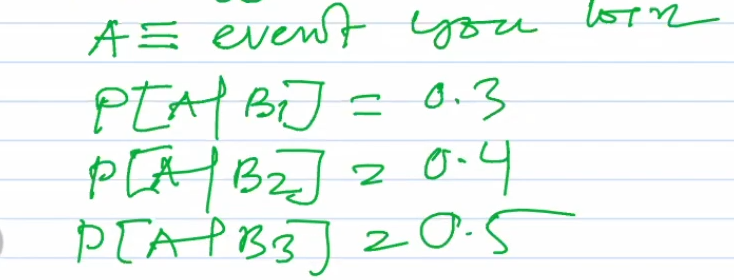 A ≡ event you win
P[A|B1] = 0.3
P[A|B2] = 0.4
P[A|B3] = 0.5